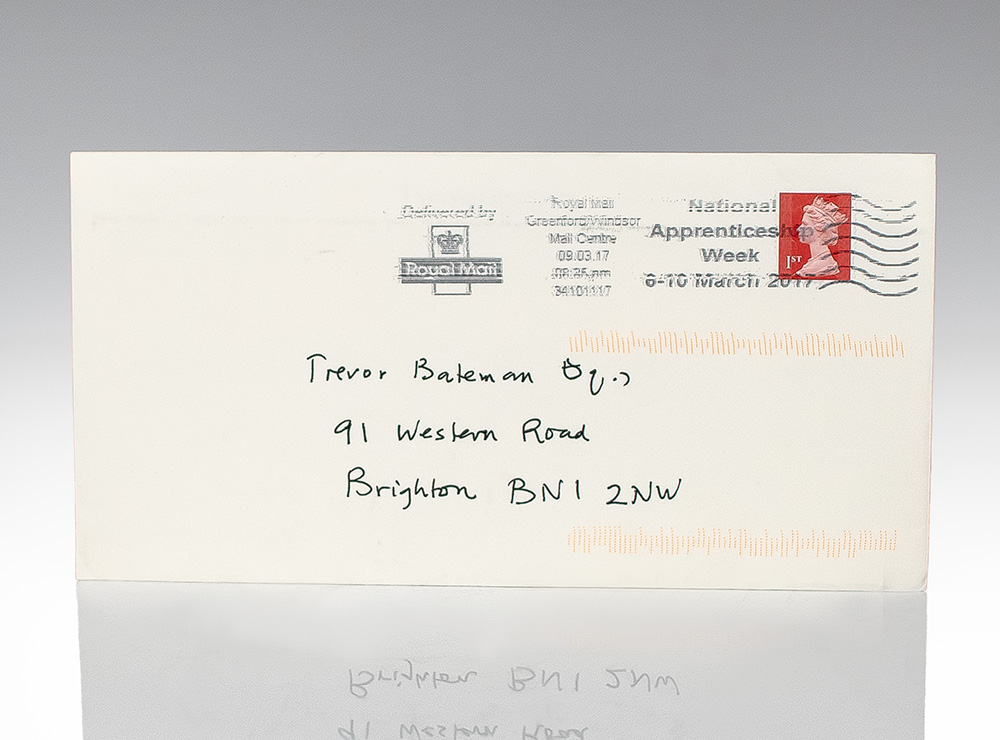 Delivered by
Royal Mail
Royal Mail
Greenford/Windsor
Mail Centre
09.03.17
08:26 pm
34101117
National
Apprenticeship
Week
6-10 March 2017
1ST
Trevor Bateman Esq.,
91 Western Road
Brighton BN1 2NW
Brighton BN1 2NW
91 Western Road